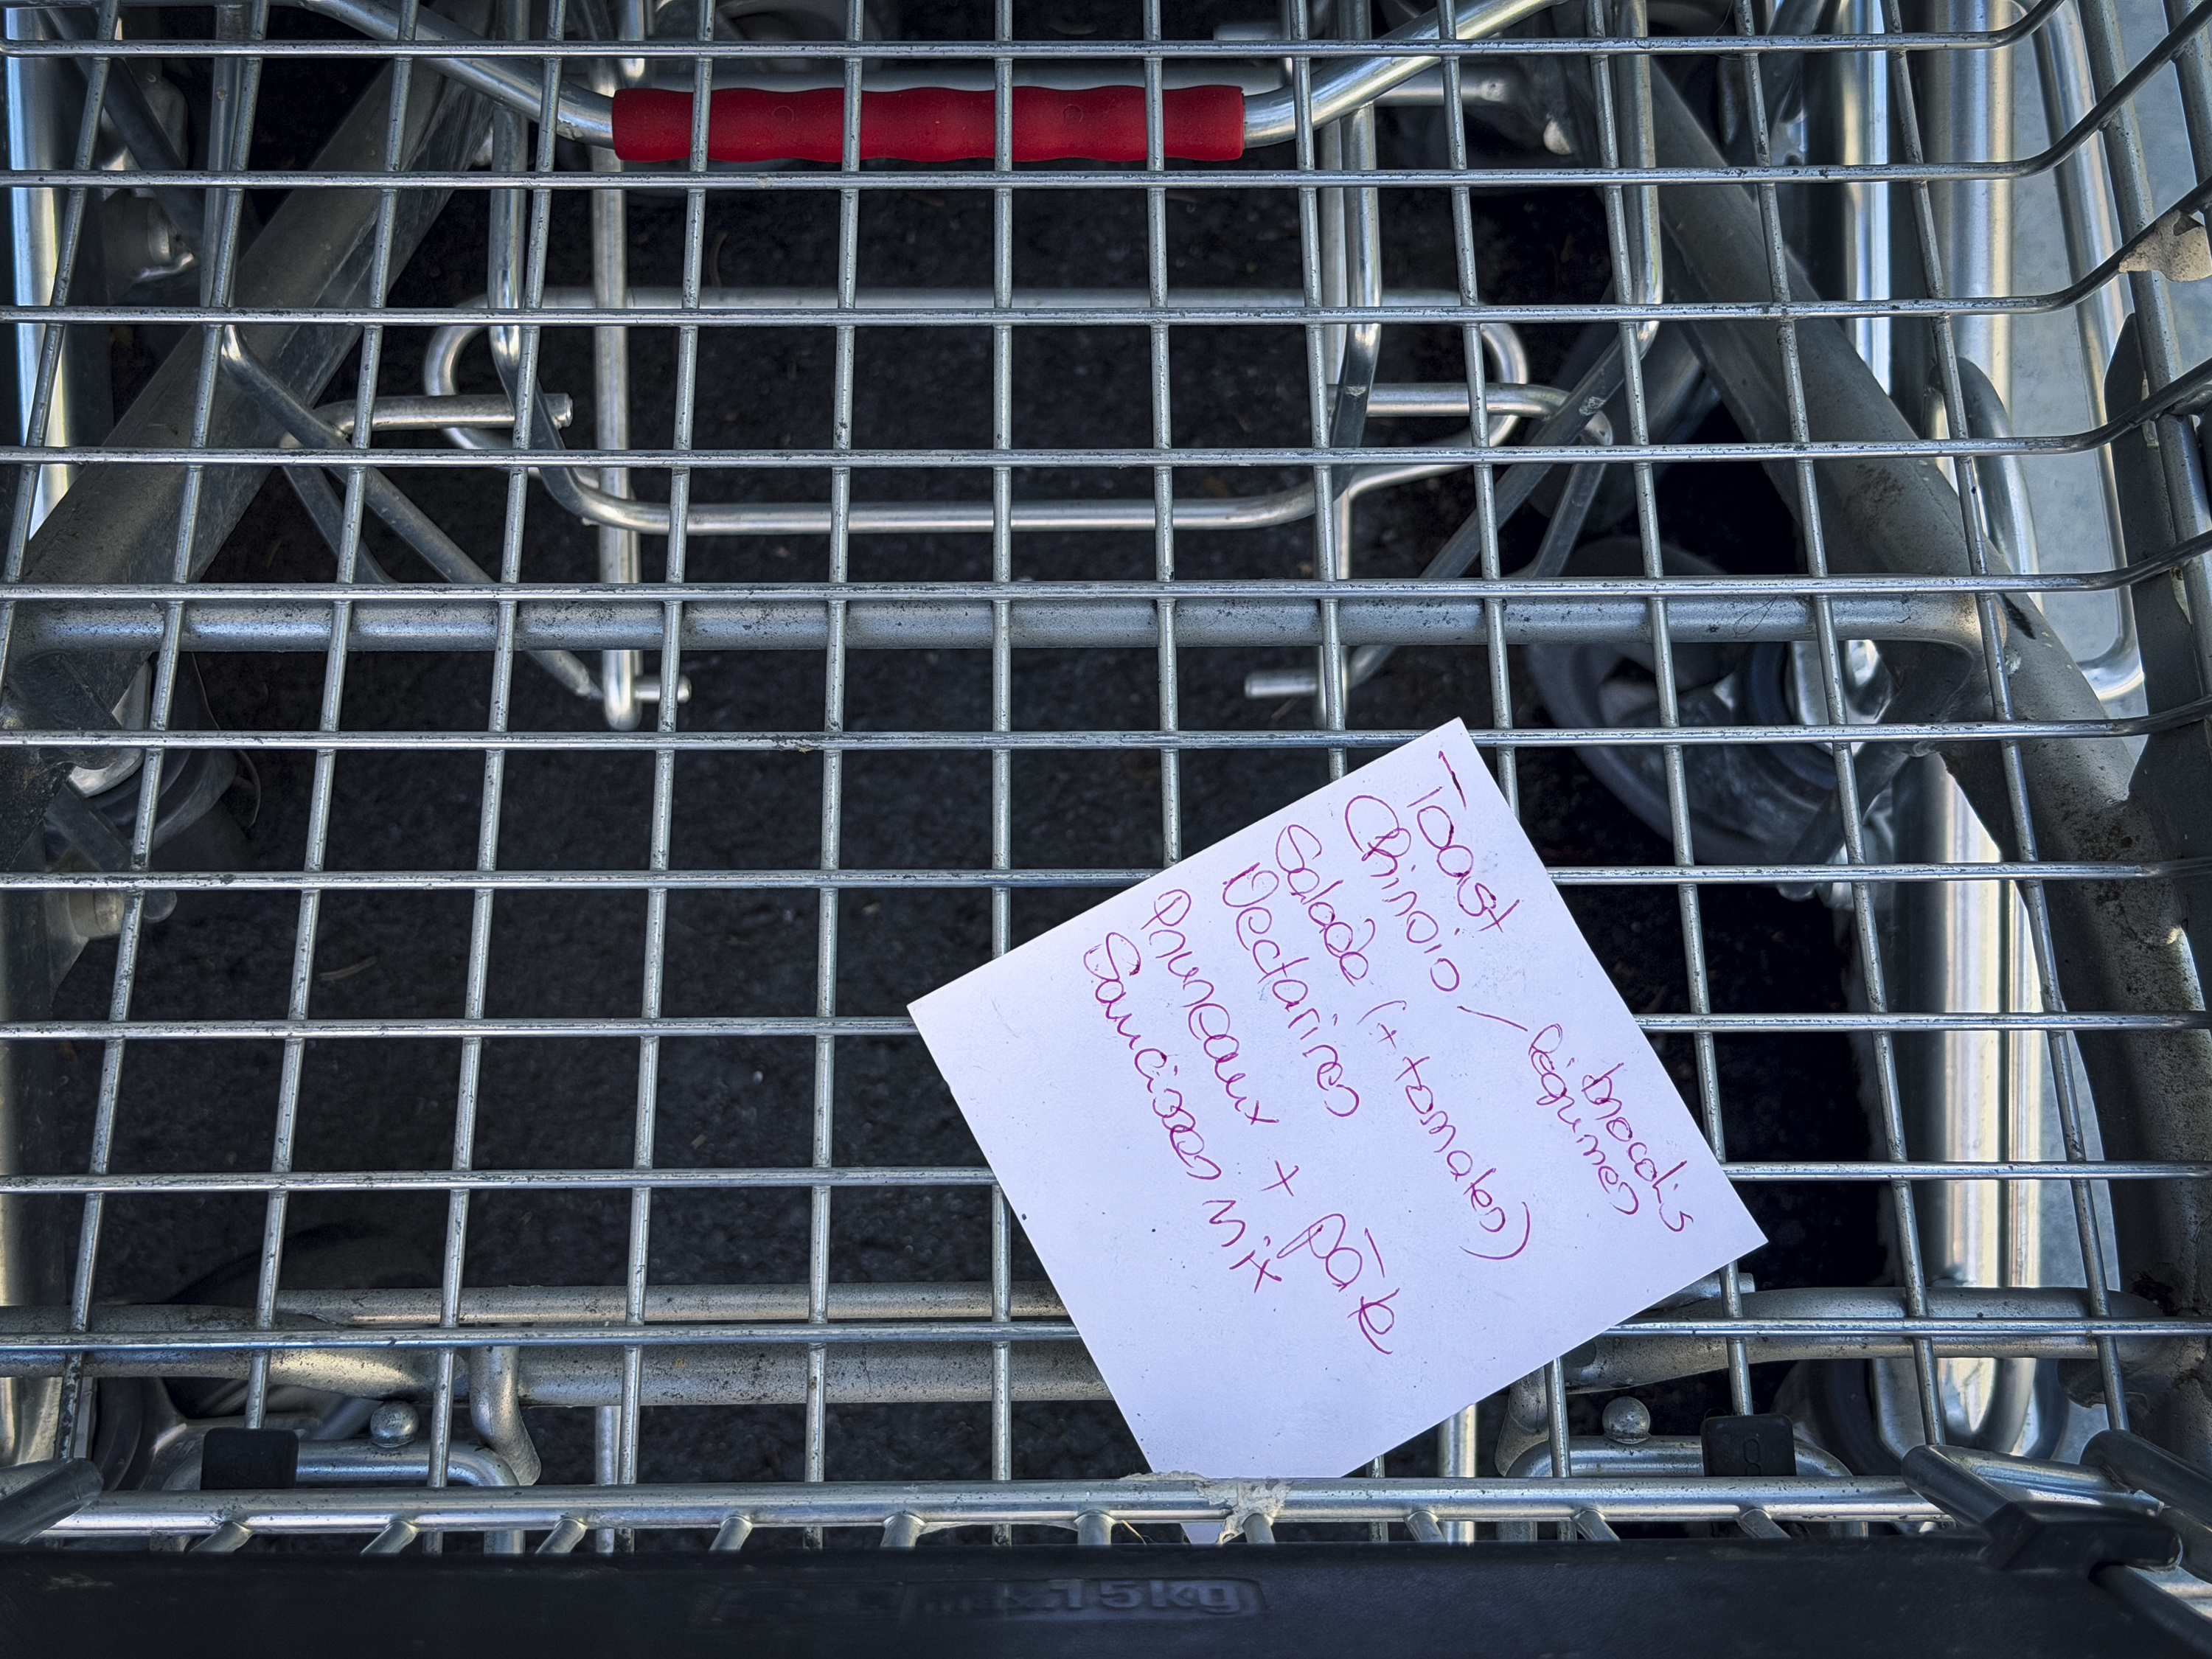 Toast
Chinois / légumes
brocolis
Salade (+ tomates)
Nectarines
Pruneaux + pâte
Saucisses mix
max. 15kg